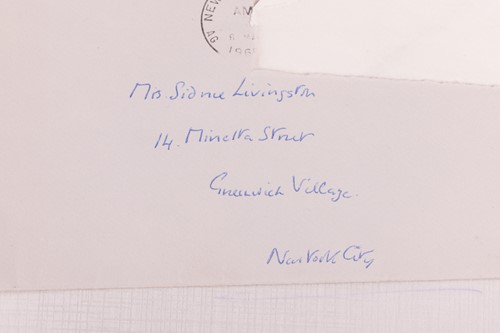 NEW
AM
Mrs Sidnie Livingston
14. Minetta Street
Greenwich Village.
New York City